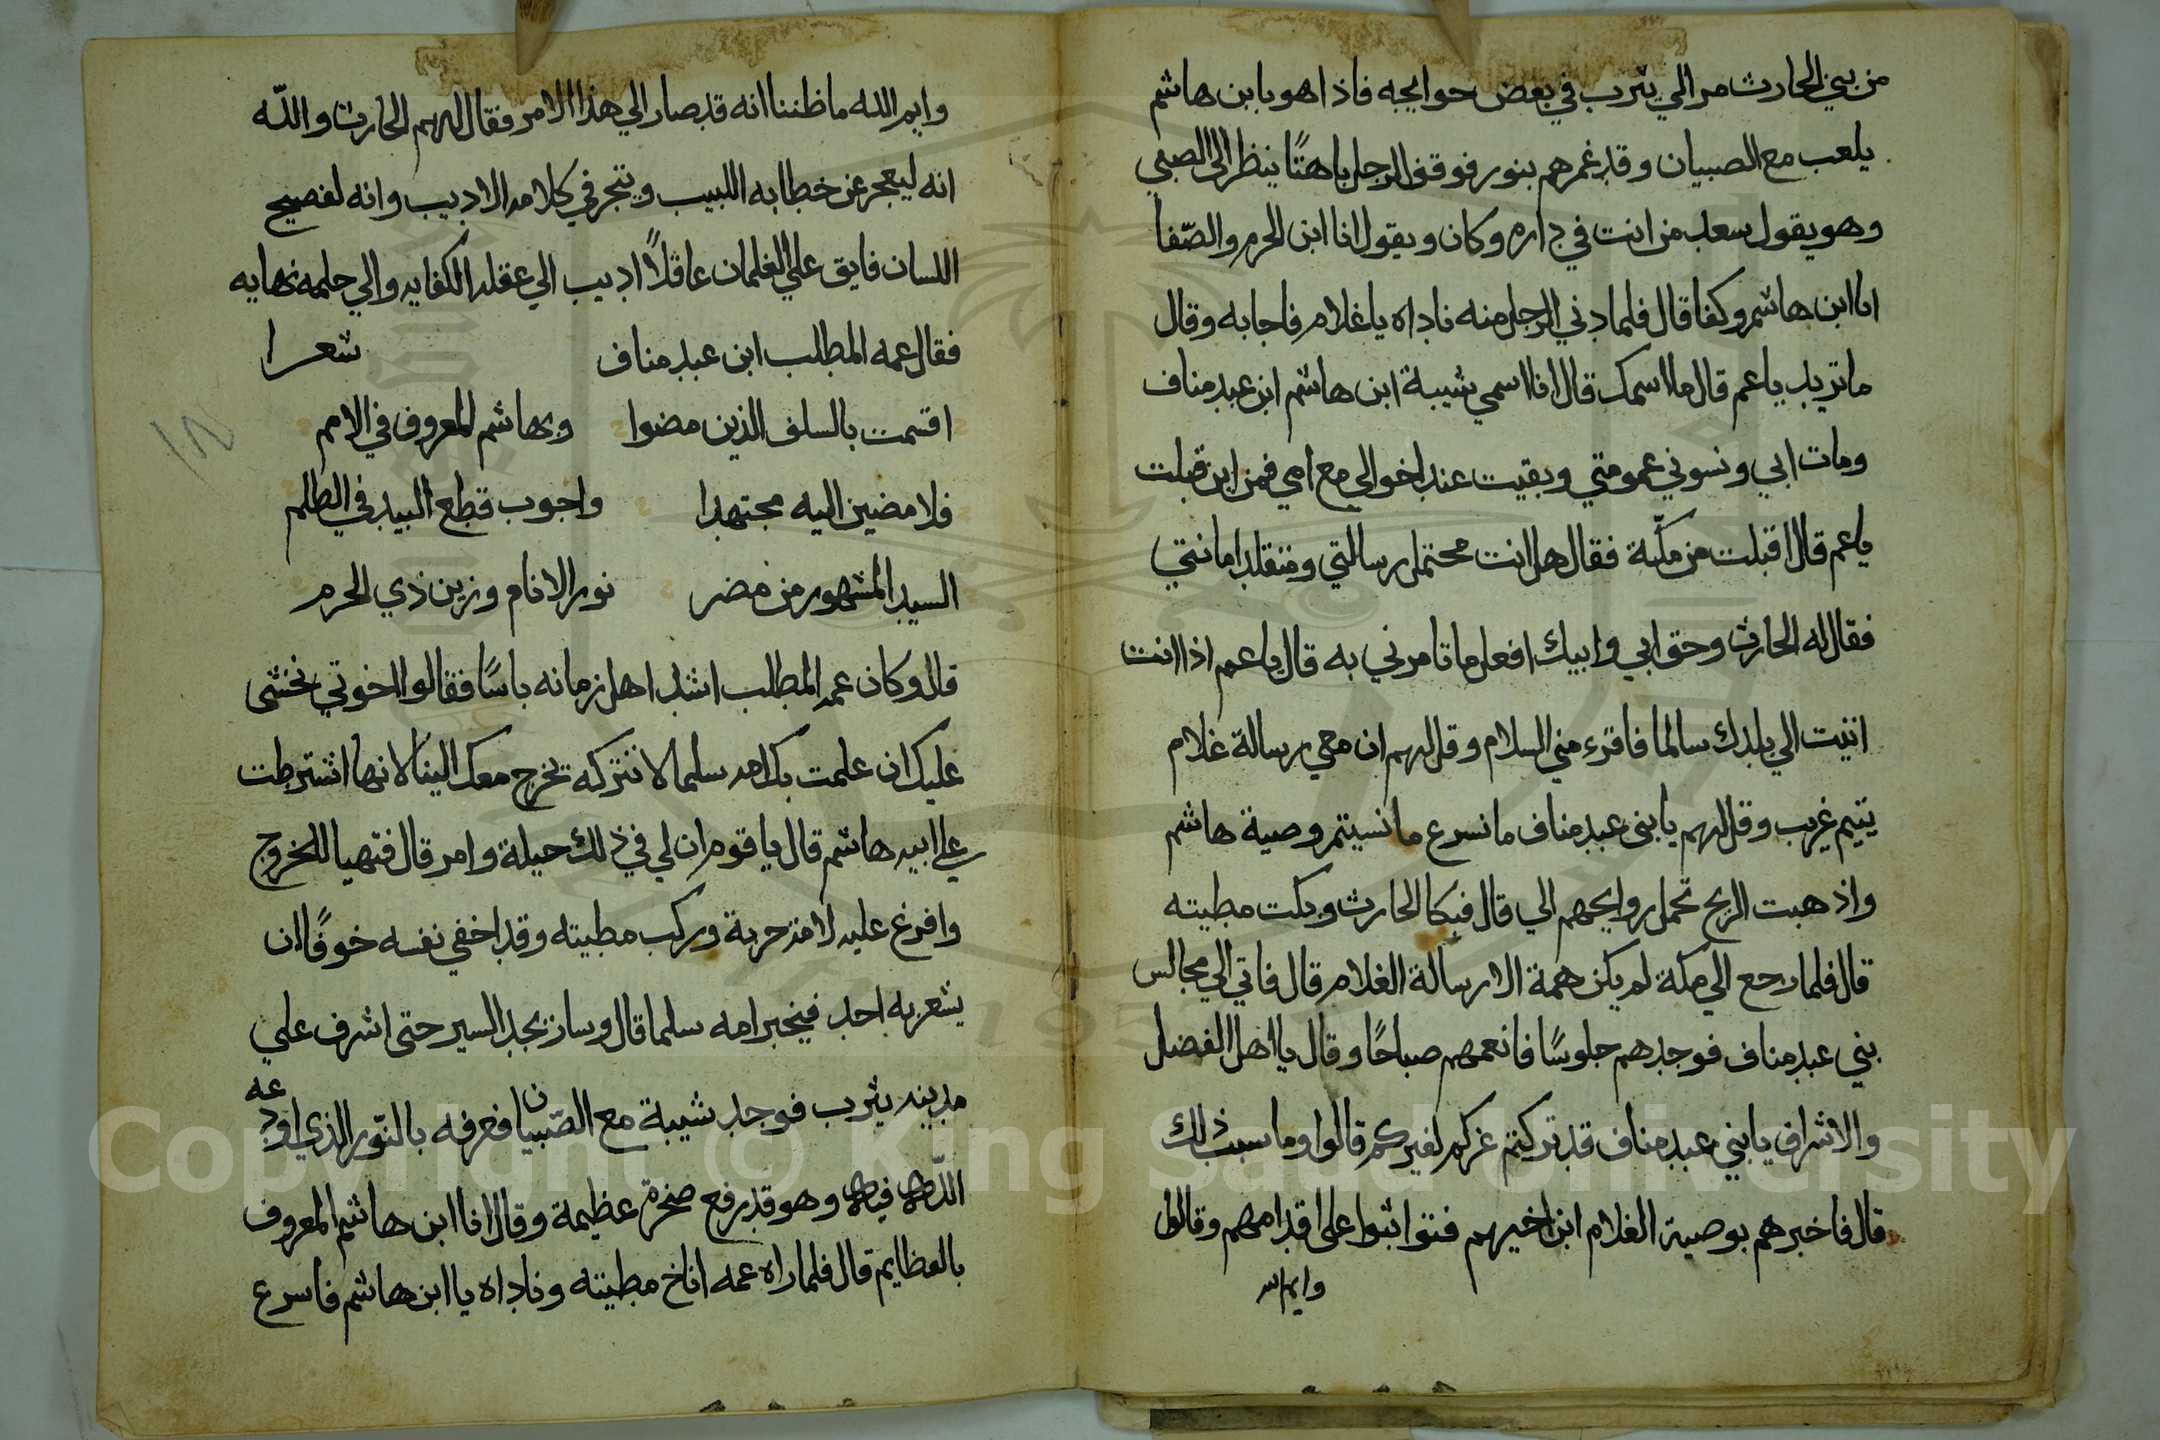 من بني الحارث مر الي يثرب في بعض حوايجه فاذا هو بابن هاشم
يلعب مع الصبيان وقد غمرهم بنور فوقف الرجل باهتًا ينظر الى الصبي
وهو يقول سعد من انت في دارم وكان ويقول انا ابن الحرم والصّفا
انا ابن هاشم وكفا قال فلما دني الرجل منه ناداه يا غلام فاجابه وقال
ما تريد ياعم قال ما اسمك قال انا اسمي شيبة ابن هاشم ابن عبد مناف
ومات ابي ونسوني عمومتي وبقيت عند اخوالي مع امي فمن اين قبلت
ياعم قال اقبلت من مكّة فقال هل انت محتمل رسالتي ومتقلد امانتي
فقال له الحارث وحق ابي وابيك افعل ما تامرني به قال ياعم اذا انت
اتيت الي بلدك سالما فاقرء مني السلام وقل لهم ان معي رسالة غلام
يتيم غريب وقل لهم يا بنى عبد مناف ما نسرع ما نسيتم وصية هاشم
واذ هبت الريح تحمل روايحهم الي قال فبكا الحارث وبكت مطيته
قال فلما رجع الي مكة لم يكن همة الا رسالة الغلام قال فاتي الي مجالس
بني عبد مناف فوجدهم جلوسًا فانعمهم صباحًا وقال يا اهل الفضل
والاشراف يابني عبد مناف قد تركتم عزكم لغيركم قالوا وما سبب ذلك
قال فاخبرهم بوصية الغلام ابن اخيهم فتواثبوا على اقدامهم وقالوا
وايم الله
وايم الله ما ظننا انه قد صار الي هذا الامر فقال لهم الحارث والله
انه ليعجز عن خطابه اللبيب ويتحير في كلامه الاديب وانه لفصيح
اللسان فايق علي الغلمان عاقلاً اديب الي عقله الكفايه والي حلمه نهايه
فقال عمه المطلب ابن عبد مناف شعرا
اقسمت بالسلف الذين مضوا وبهاشم المعروف في الامم
فلامضين اليه مجتهدا واجوب قطع البيد في الظلم
السيد المشهور من مضر نور الانام وزين ذي الحرم
قال وكان عمه المطلب اشد اهل زمانه باسًا فقالوا اخوتي نخشى
عليك ان علمت بك امه سلما لا تتركه يخرج معك الينا لانها اشترطت
علي ابيه هاشم قال يا قوم ان لي في ذلك حيلة وامر قال فتهيا للخروج
وافرغ عليه لامة حربة وركب مطيته وقد اخفي نفسه خوفًا ان
يشعر به احد فيخبر امه سلما قال وسار يجد السير حتى اشرف علي
مدينه يثرب فوجد شيبة مع الصّبيان فعرفه بالنّور الذي اودعه
اللّه فيه وهو قد رفع صخرة عظيمة وقال انا ابن هاشم المعروف
بالعظايم قال فلما راه عمه اناخ مطيته وناداه يا ابن هاشم فاسرع
Copyright © King Saud University